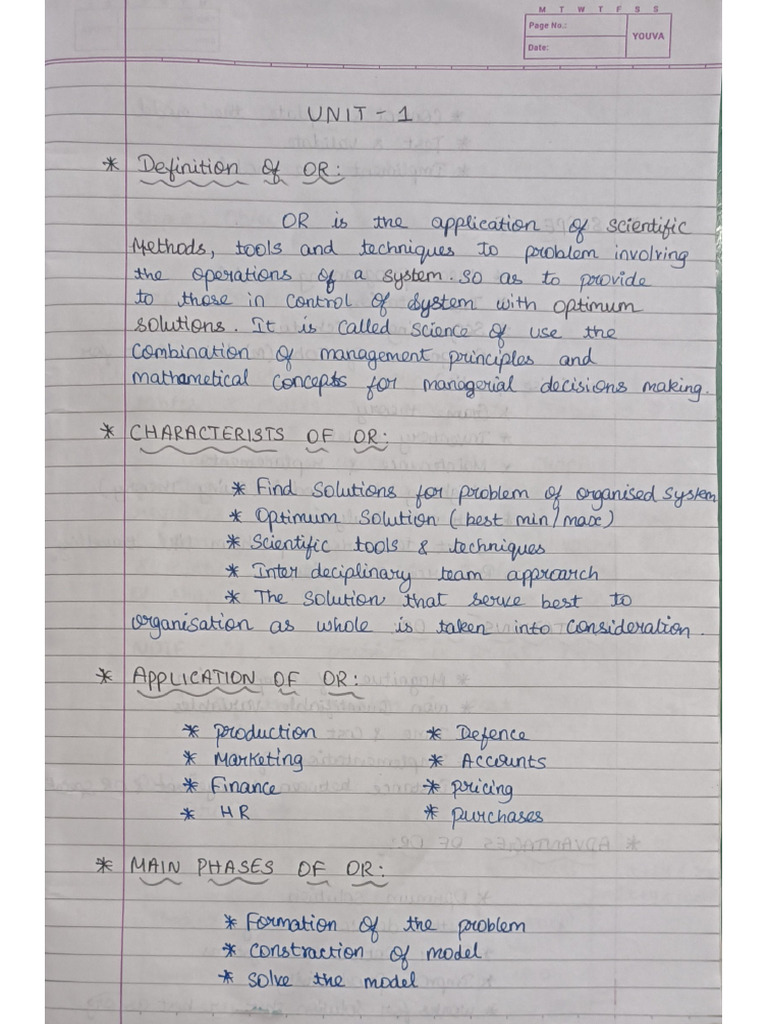 M T W T F S S
Page No.:
YOUVA
Date:
UNIT - 1
* Definition of OR:
OR is the application of scientific
Methods, tools and techniques to problem involving
the operations of a system. so as to provide
to those in control of system with optimum
solutions. It is called science of use the
combination of management principles and
mathametical concepts for managerial decisions making.
* CHARACTERISTS OF OR:
* Find solutions for problem of organised system
* Optimum solution (best min/max)
* Scientific tools & techniques
* Inter deciplinary team approarch
* The solution that serve best to
organisation as whole is taken into consideration.
* APPLICATION OF OR:
* production * Defence
* Marketing * Accounts
* Finance * pricing
* HR * purchases
* MAIN PHASES OF OR:
* Formation of the problem
* constraction of model
* solve the model